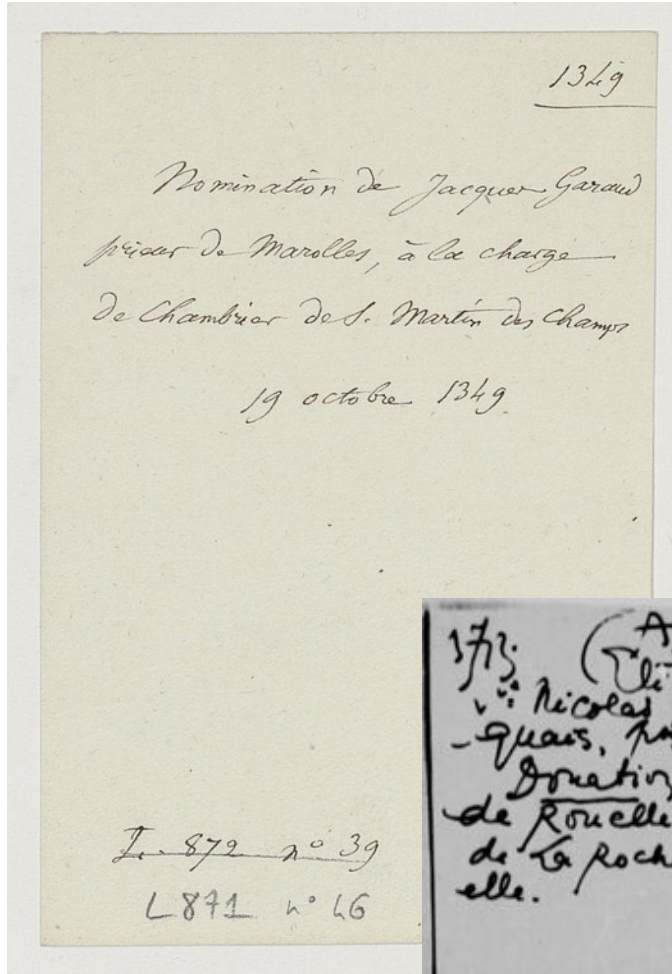 1349
Nomination de Jacques Garaud
prieur de Marolles, à la charge
de Chambrier de S. Martin des Champs
19 octobre 1349.
L. 872 nº 39
L 871 nº 46
Nicolas
quais,
Donation
de Roucelle
de La Roch
elle.